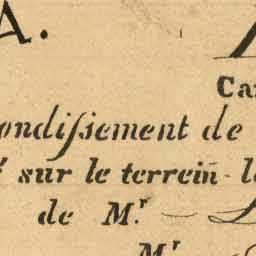 A.
Ca
ondiſsement de
sur le terrein l
de Mr
Mr